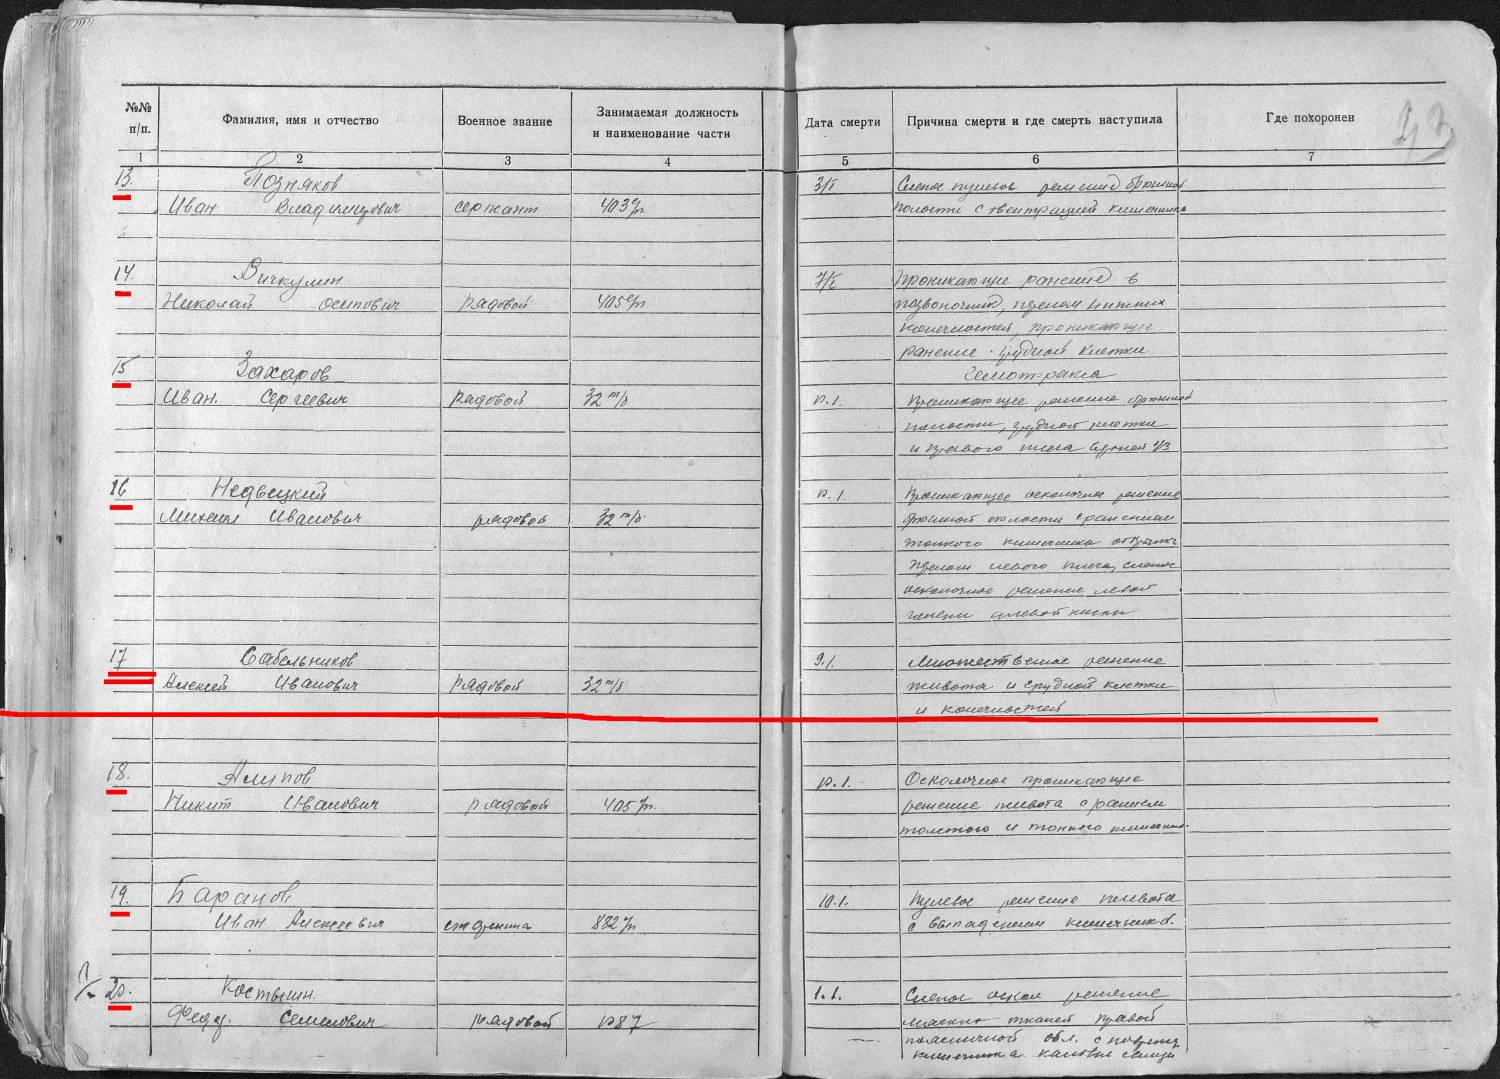 №№ п/п. Фамилия, имя и отчество Военное звание Занимаемая должность и наименование части Дата смерти Причина смерти и где смерть наступила Где похоронен
1 2 3 4 5 6 7
43
13. Позняков 3/I Слепое пулевое ранение брюшной
Иван Владимирович сержант полости с кишечника
14. Вичкулин 7/I Проникающие ранение в
Николай Осипович рядовой 405 позвоночник, нижних
конечностей, проникающие
ранение грудной клетки
15 Захаров
Иван. Сергеевич рядовой 32 Проникающее ранение брюшной
полости, грудной клетки
и правого плеча
16 Недвецкий Проникающее осколочное ранение
Михаил Иванович рядовой 32 полости с ранением
тонкого кишечника
левого плеча, слепое
осколочное ранение левой
17 Сабельников 9.1. Множественное ранение
Алексей Иванович рядовой 32 живота и грудной клетки
и конечностей
18. Алипов Осколочное проникающие
Никит Иванович рядовой 405 ранение живота с ранением
толстого и тонкого
19. Баранов 10.1. Пулевое ранение живота
Иван Алексеевич старшина 882 с выпадением кишечника.
20. 1.1. Слепое ранение
Федор. Семенович рядовой 1087 тканей правой
поясничной обл. с
кишечника